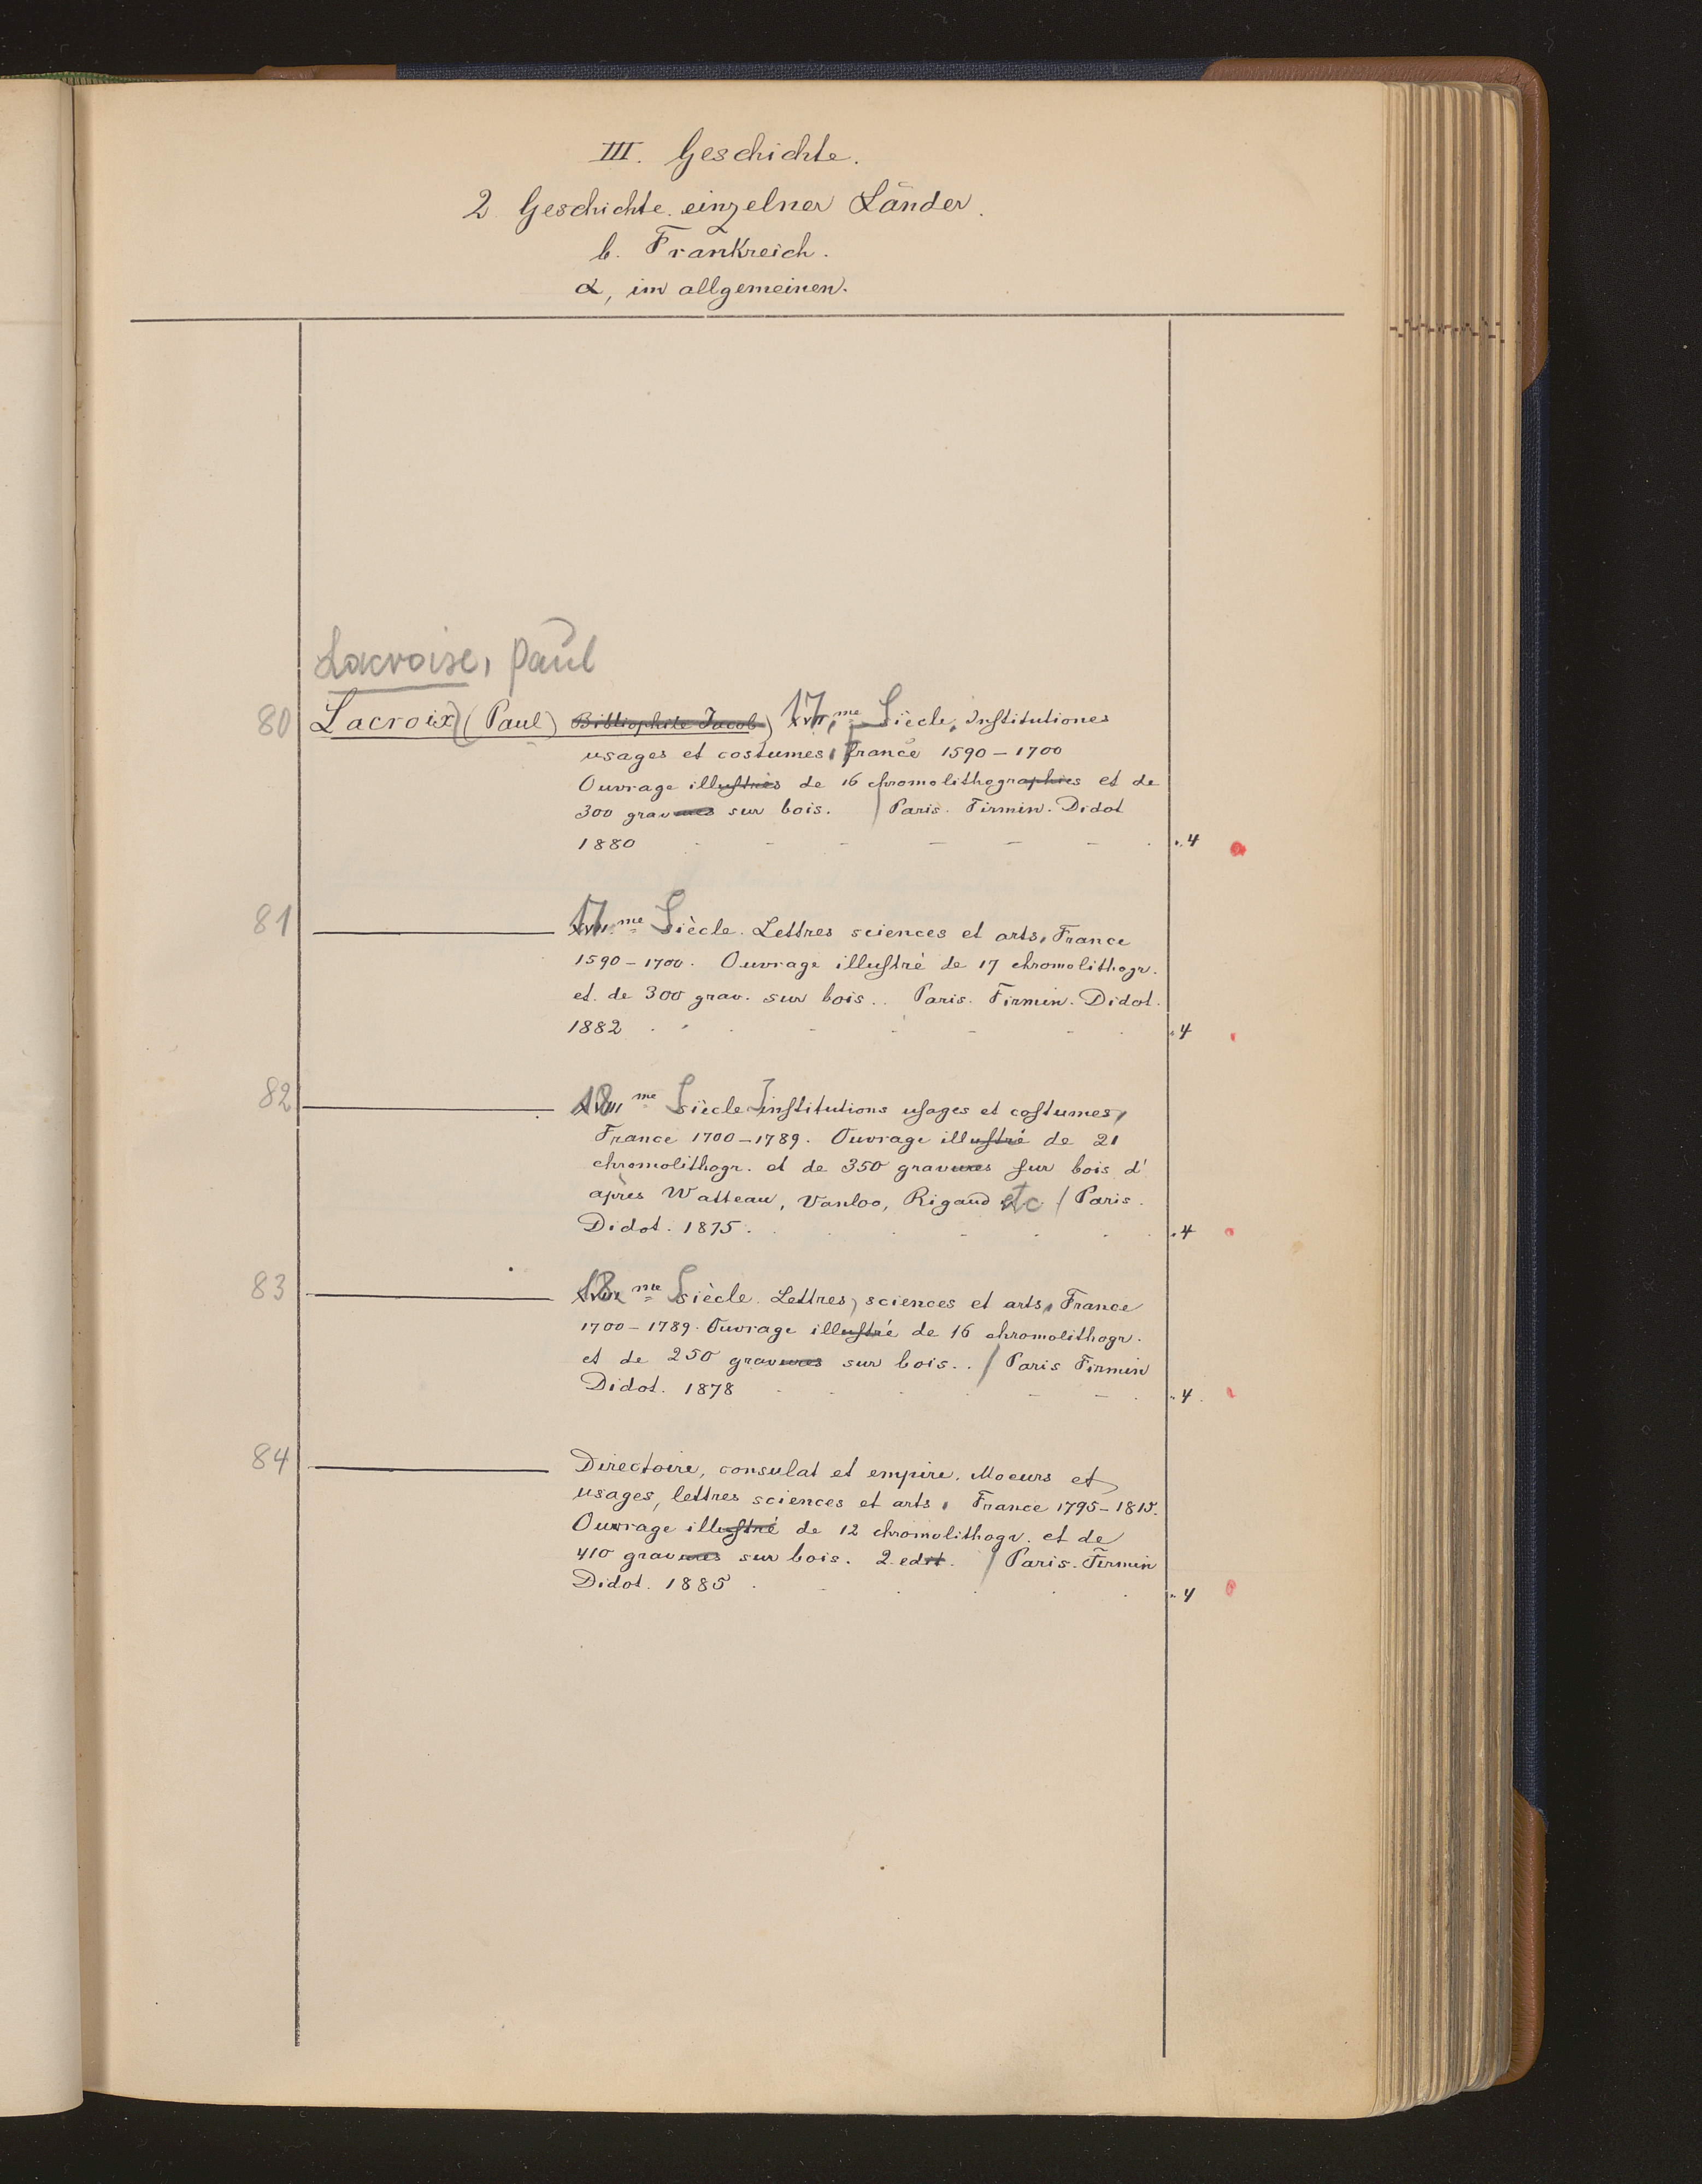 III. Geschichte.
2 Geschichte einzelner Länder.
b. Frankreich.
α, im allgemeinen.
Lacroise, Paul
80 Lacroix (Paul) Bibliophile Jacob) 17.me Siècle, Institutiones
usages et costumes, France 1590-1700
Ouvrage illustrès de 16 chromolithographies et de
300 gravures sur bois. / Paris. Firmin. Didot
1880 4
81 17me Siècle. Lettres sciences et arts, France
1590-1700. Ouvrage illustrè de 17 chromolithogr.
et de 300 grav. sur bois.. Paris. Firmin. Didot.
1882 4
82 18me Siècle Institutions usages et costumes,
France 1700-1789. Ouvrage illustré de 21
chromolithogr. et de 350 gravures sur bois d'
après Watteau, Vanloo, Rigaud etc / Paris.
Didot. 1875. 4
83 18me Siècle. Lettres, sciences et arts, France
1700-1789. Ouvrage illustré de 16 chromolithogr.
et de 250 gravures sur bois.. / Paris Firmin
Didot. 1878 4
84 Directoire, consulat et empire. Moeurs et
usages, lettres sciences et arts, France 1795-1815.
Ouvrage illustré de 12 chromolithogr. et de
410 gravures sur bois. 2. edit. / Paris. Firmin
Didot. 1885 4